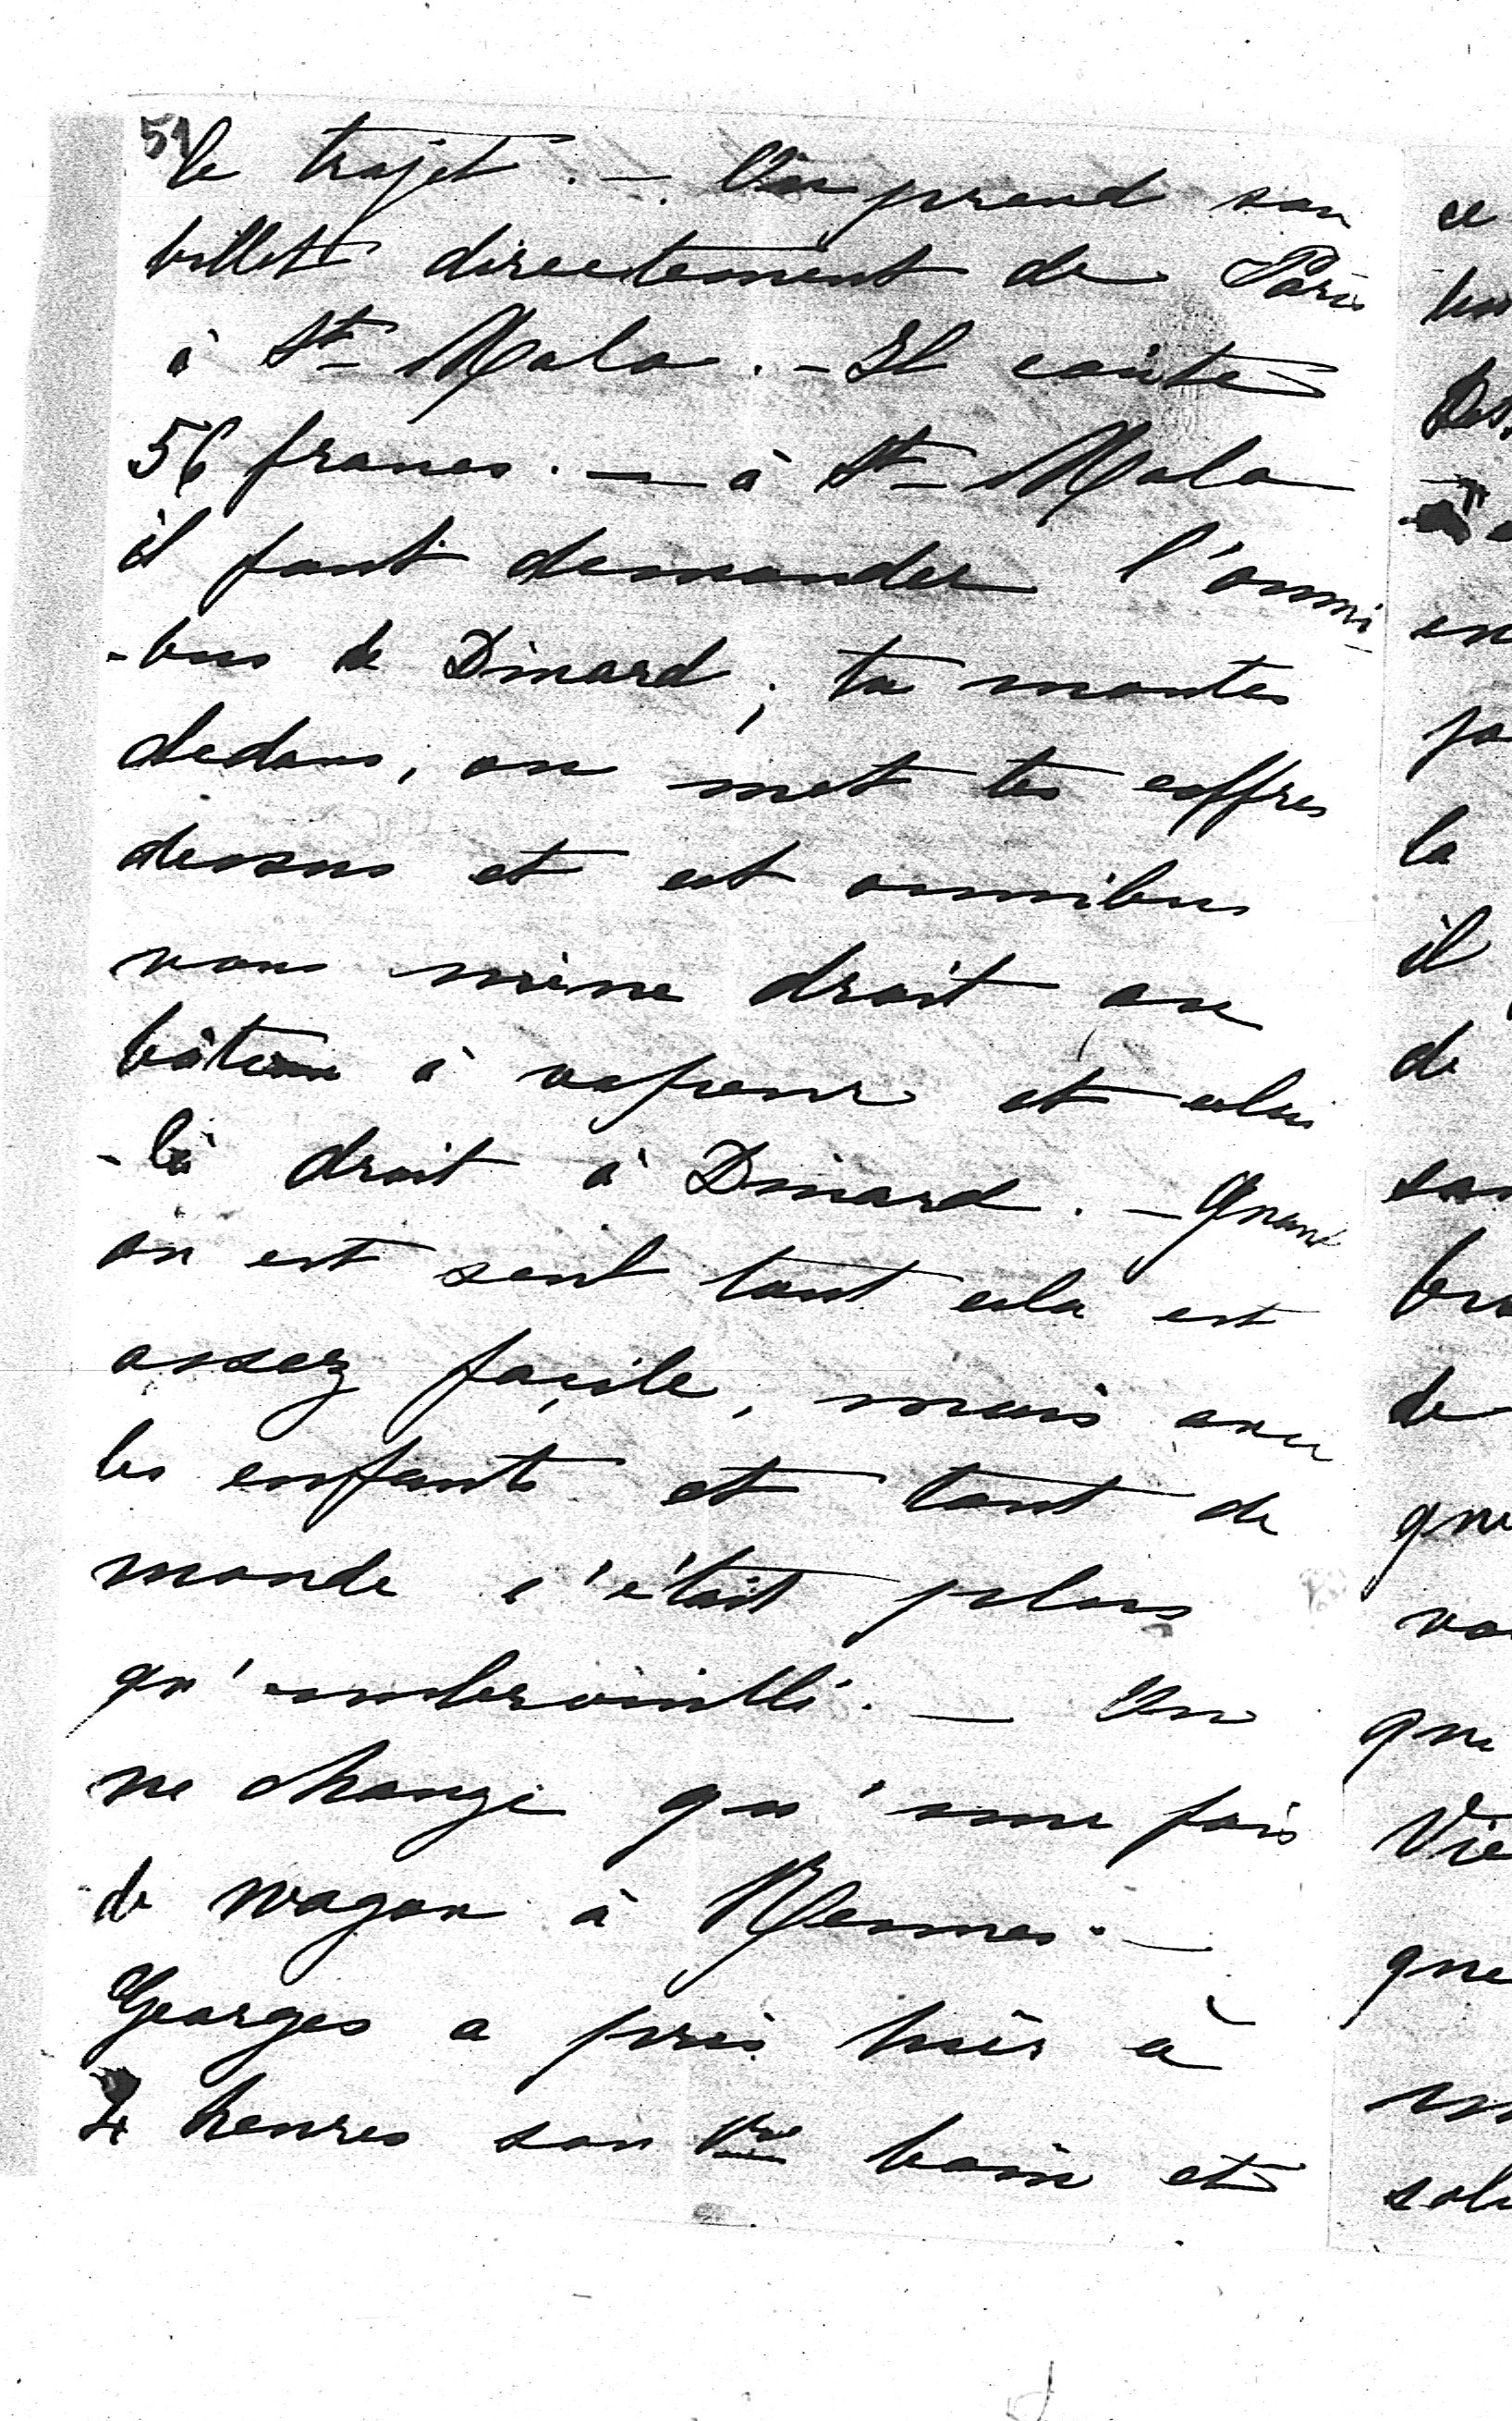 51
le trajet. — On prend son
billet directement de Paris
à St Malo. — Il coûte
56 francs. — à St Malo
il faut demander l'omni-
-bus de Dinard, tu montes
dedans, on met tes coffres
dessus et cet omnibus
vous mène droit au
bâteau à vapeur et celui
-là droit à Dinard. — Quand
on est seul tout cela est
assez façile, mais avec
les enfants et tant de
monde c'était plus
qu'embrouillé. — On
ne change qu'une fois
de wagon à Rennes. —
Georges a pris hier à
4 heures son bain et
ce
la
il
de
de
qui
Vie
que